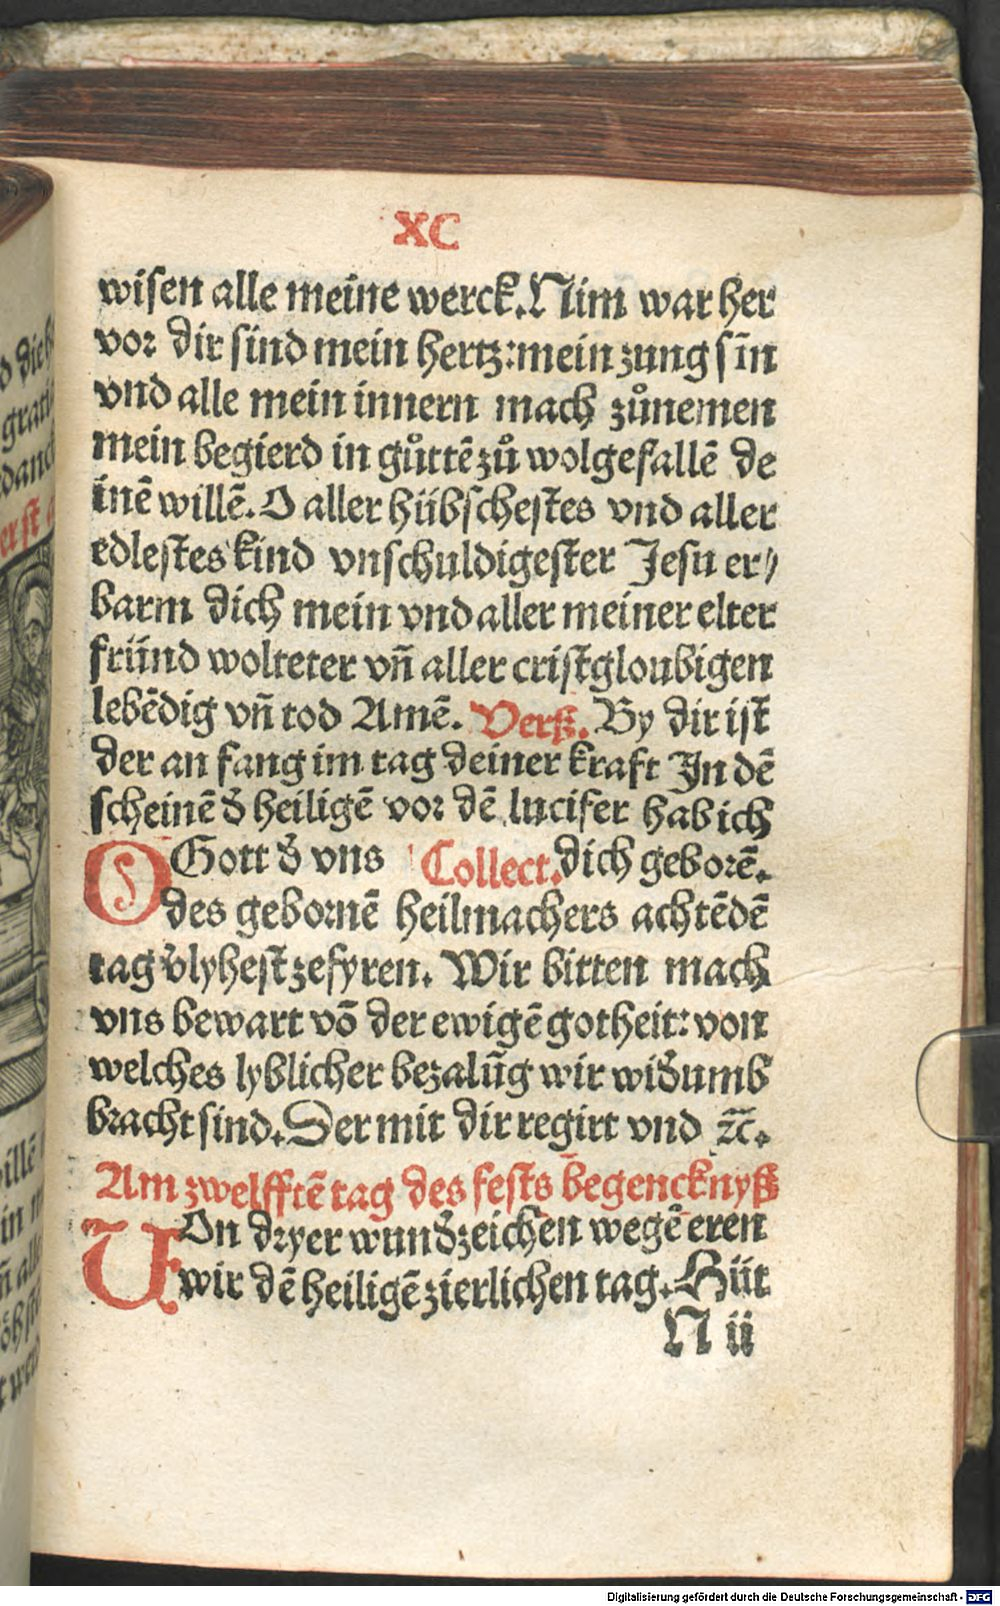 XC
wisen alle meine werck. Nim war her
vor dir sind mein hertz: mein zung sin̄
vnd alle mein innern mach zů nemen
mein begierd in gůttē zů wolgefallē de
inē willē. O aller hübschestes vnd aller
edlestes kind vnschuldigester Jesu er⸗
barm dich mein vnd aller meiner elter
fründ wolteter vn̄ aller cristgloubigen
lebēdig vn̄ tod Amē. Verß. By dir ist
der an fang im tag deiner kraft In dē
scheinē dˀ heiligē vor dē lucifer hab ich
O Gott dˀ vns Collect. dich geborē.
des gebornē heilmachers achtēdē
tag vˀlyhest zefyren. Wir bitten mach
vns bewart vō der ewigē gotheit: von
welches lyblicher bezalūg wir widˀumb
bracht sind. Der mit dir regirt vnd ꝛc̄.
Am zwelfftē tag des fests begencknyß
VOn dryer wundˀzeichen wegē eren
wir dē heiligē zierlichen tag. Hüt
N ii
Digitalisierung gefördert durch die Deutsche Forschungsgemeinschaft - DFG